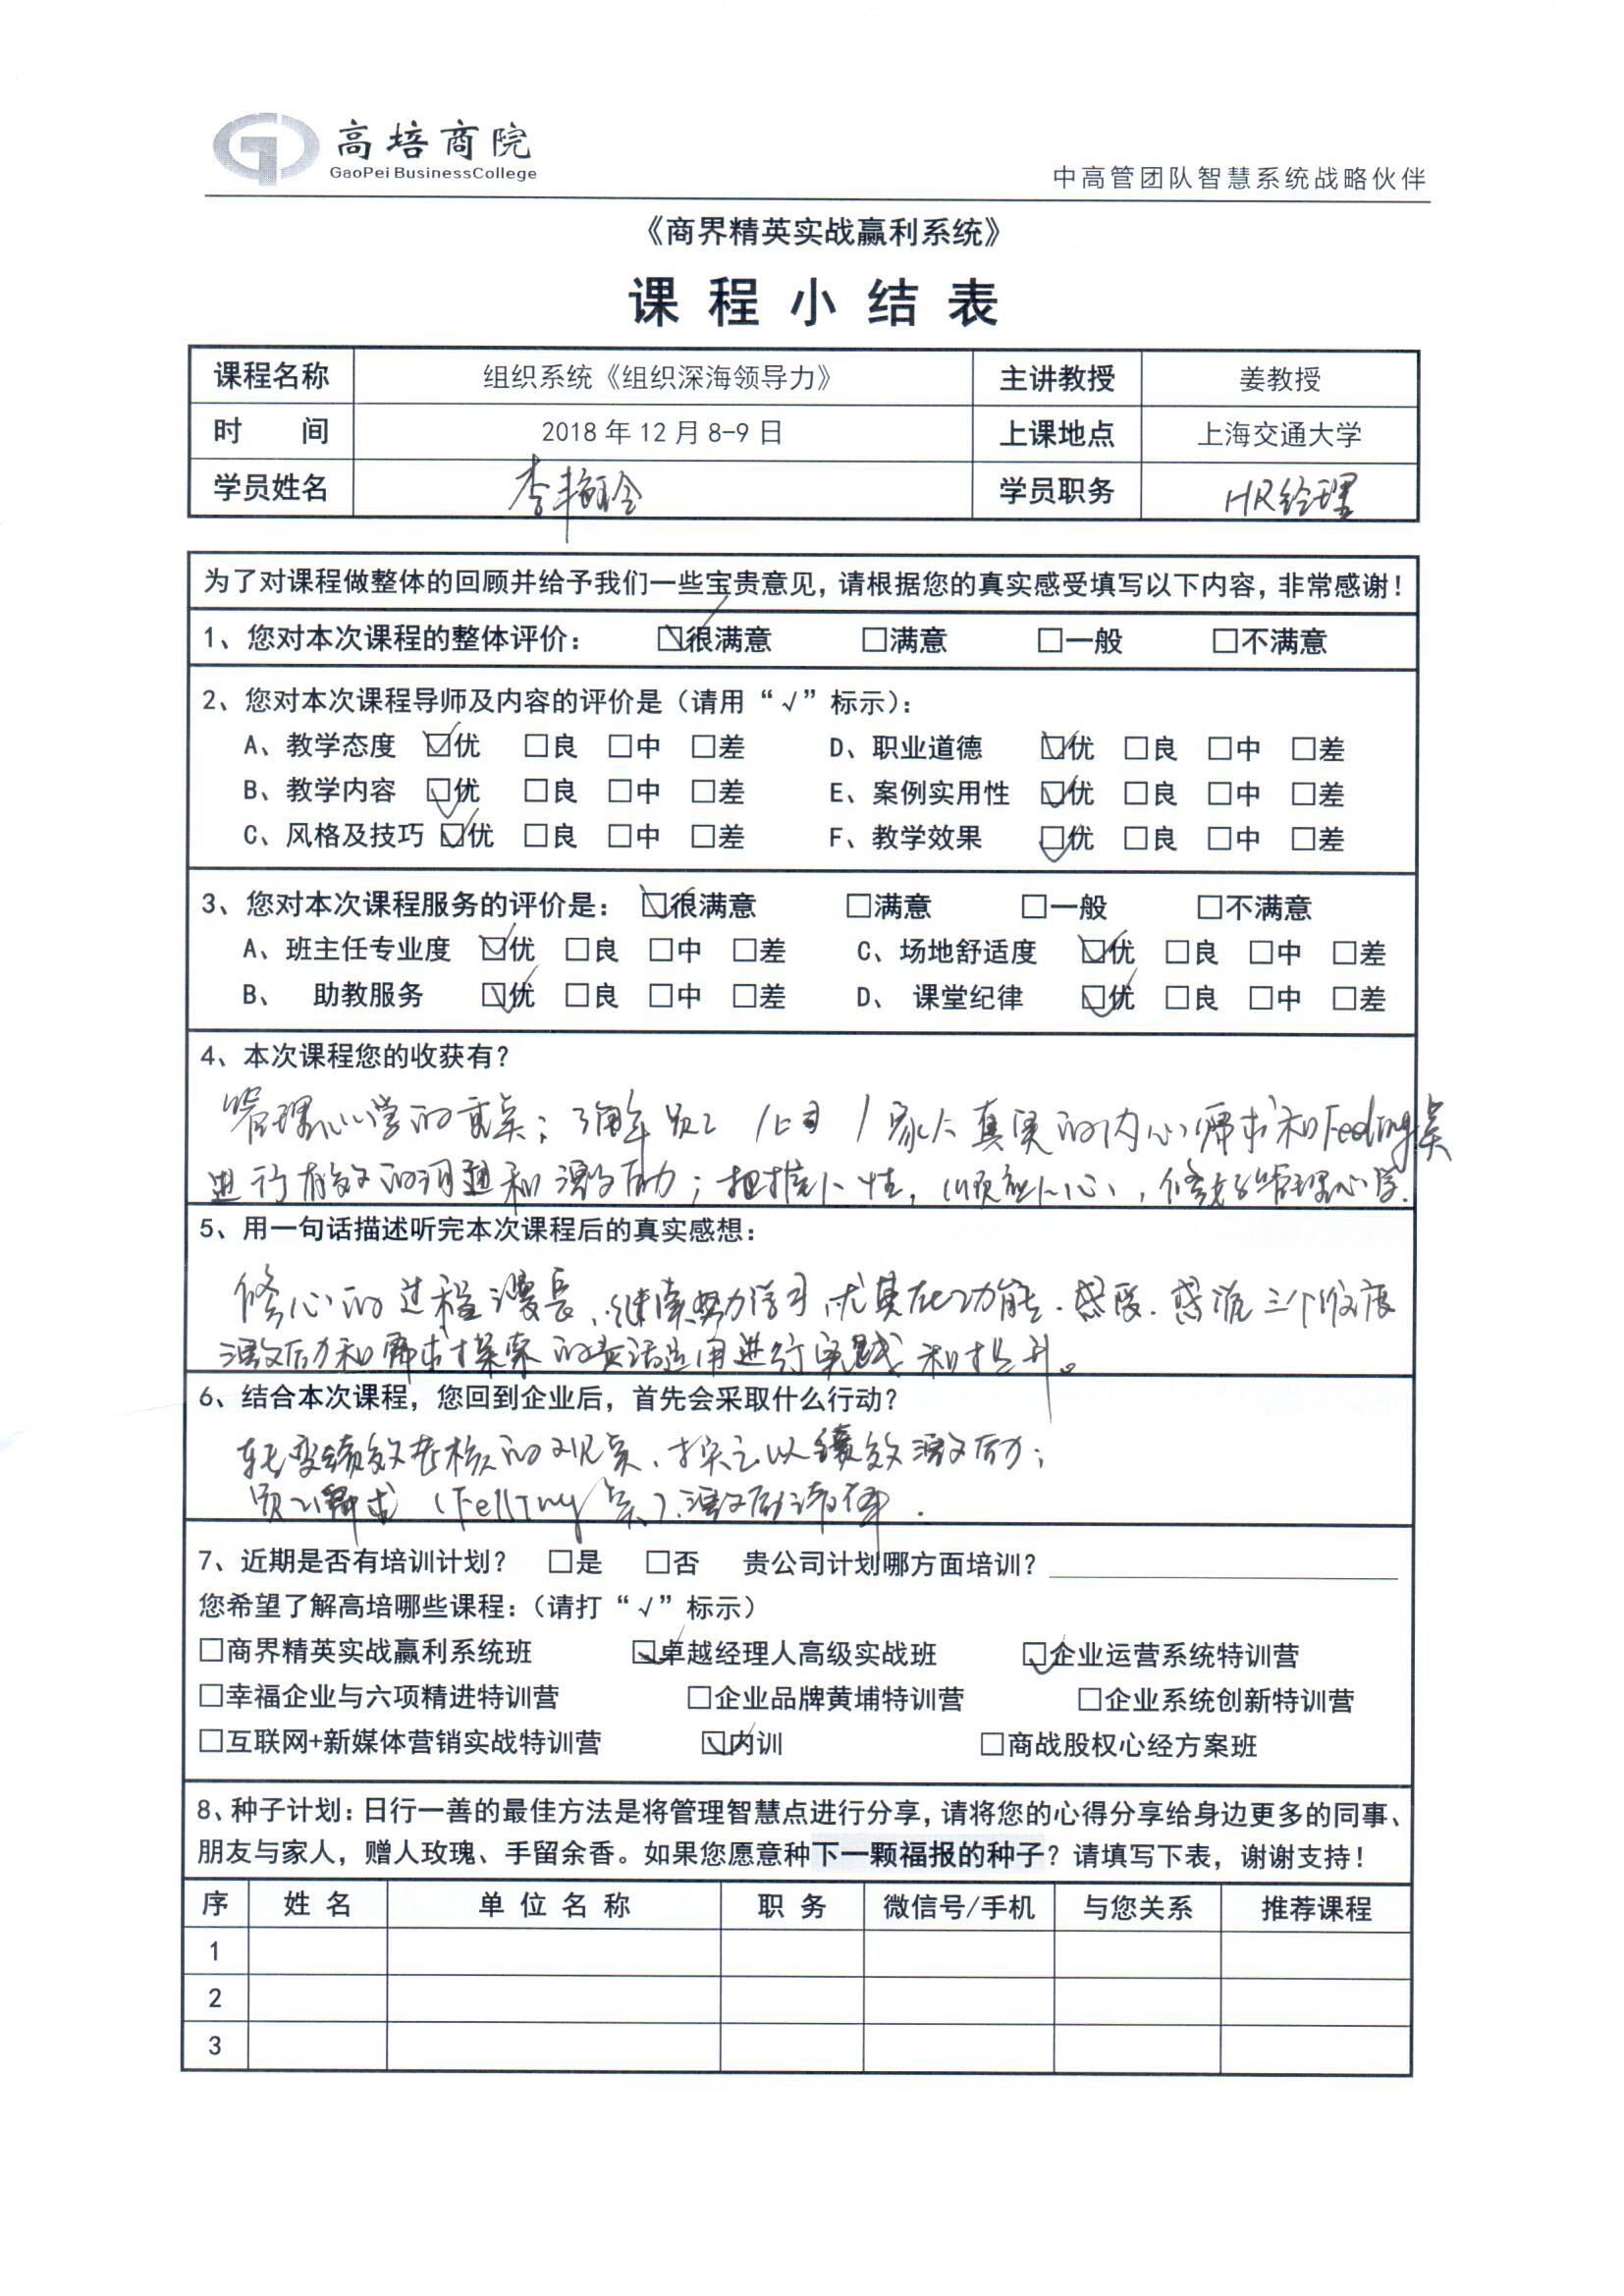 高培商院
GaoPei BusinessCollege
中高管团队智慧系统战略伙伴
《商界精英实战赢利系统》
课程小结表
课程名称 组织系统《组织深海领导力》 主讲教授 姜教授
时 间 2018年12月8-9日 上课地点 上海交通大学
学员姓名 李艳玲 学员职务 HR经理
为了对课程做整体的回顾并给予我们一些宝贵意见，请根据您的真实感受填写以下内容，非常感谢！
1、您对本次课程的整体评价： ☑很满意 □满意 □一般 □不满意
2、您对本次课程导师及内容的评价是（请用“√”标示）：
A、教学态度 ☑优 □良 □中 □差 D、职业道德 ☑优 □良 □中 □差
B、教学内容 ☑优 □良 □中 □差 E、案例实用性 ☑优 □良 □中 □差
C、风格及技巧 ☑优 □良 □中 □差 F、教学效果 ☑优 □良 □中 □差
3、您对本次课程服务的评价是： ☑很满意 □满意 □一般 □不满意
A、班主任专业度 ☑优 □良 □中 □差 C、场地舒适度 ☑优 □良 □中 □差
B、 助教服务 ☑优 □良 □中 □差 D、 课堂纪律 ☑优 □良 □中 □差
4、本次课程您的收获有？
管理心学的重点；了解员工/上司/家人真实的内心需求和Feeling点
进行有效的沟通和激励；把握人性，顺应人心，修好管理心学.
5、用一句话描述听完本次课程后的真实感想：
修心的过程漫长、继续努力学习,尤其在功能、感受、三个
激励和需求探索的运用进行实践和提升。
6、结合本次课程，您回到企业后，首先会采取什么行动？
转变绩效考核的观点、换之以绩效激励；
员工需求（Felling点）激励.
7、近期是否有培训计划？ □是 □否 贵公司计划哪方面培训？
您希望了解高培哪些课程：（请打“√”标示）
□商界精英实战赢利系统班 ☑卓越经理人高级实战班 ☑企业运营系统特训营
□幸福企业与六项精进特训营 □企业品牌黄埔特训营 □企业系统创新特训营
□互联网+新媒体营销实战特训营 ☑内训 □商战股权心经方案班
8、种子计划：日行一善的最佳方法是将管理智慧点进行分享，请将您的心得分享给身边更多的同事、
朋友与家人，赠人玫瑰、手留余香。如果您愿意种下一颗福报的种子？请填写下表，谢谢支持！
序 姓名 单位名称 职务 微信号/手机 与您关系 推荐课程
1
2
3